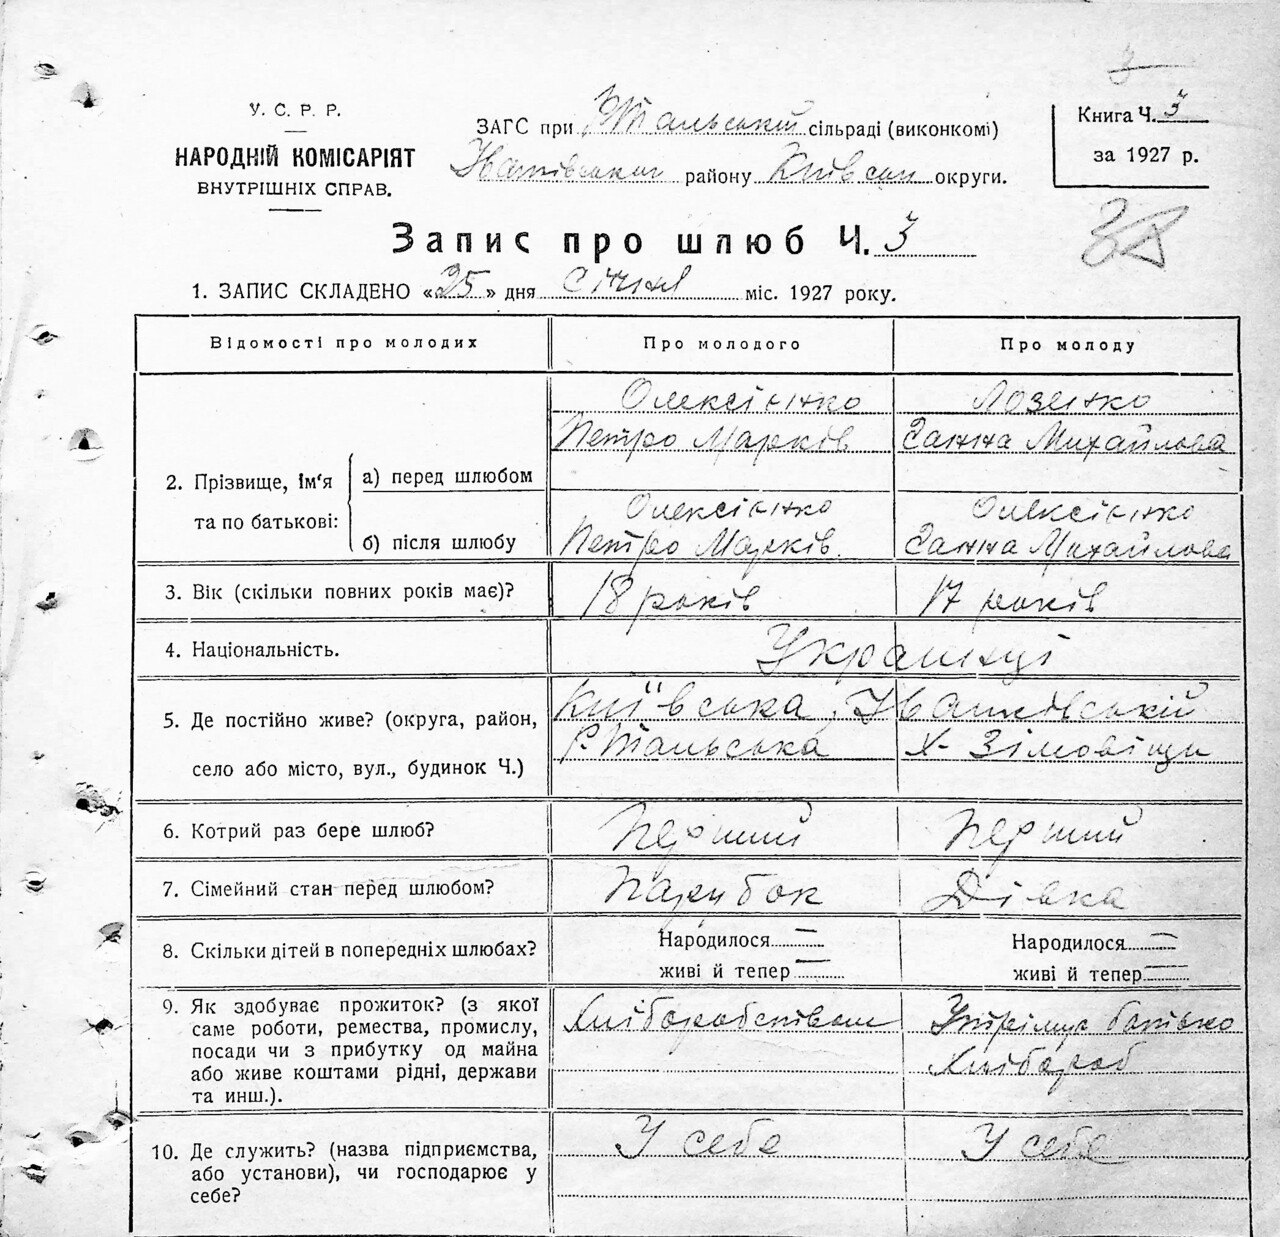 У. С. Р. Р.
НАРОДНІЙ КОМІСАРІЯТ
ВНУТРІШНІХ СПРАВ.
ЗАГС при Шпальській сільраді (виконкомі)
Іванківськ району Київськ округи.
Книга Ч. 3
за 1927 р.
Запис про шлюб Ч. 3
1. ЗАПИС СКЛАДЕНО «25» дня Січня міс. 1927 року.
Відомості про молодих Про молодого Про молоду
2. Прізвище, ім'я та по батькові:
а) перед шлюбом
Олексієнко Лозенко
Петро Марків Ганна Михайлова
б) після шлюбу
Олексієнко Олексієнко
Петро Марків Ганна Михайлова
3. Вік (скільки повних років має)? 18 років 17 років
4. Національність. Українці
5. Де постійно живе? (округа, район,
село або місто, вул., будинок Ч.)
Київська, Іванківський
х. Зімовіщи
6. Котрий раз бере шлюб? Перший Перший
7. Сімейний стан перед шлюбом? Парубок Дівка
8. Скільки дітей в попередніх шлюбах? Народилося — Народилося —
живі й тепер — живі й тепер —
9. Як здобуває прожиток? (з якої
саме роботи, ремества, промислу,
посади чи з прибутку од майна
або живе коштами рідні, держави
та инш.).
Хліборобством Утрімує батько
Хлібороб
10. Де служить? (назва підприємства,
або установи), чи господарює у
себе?
У себе У себе